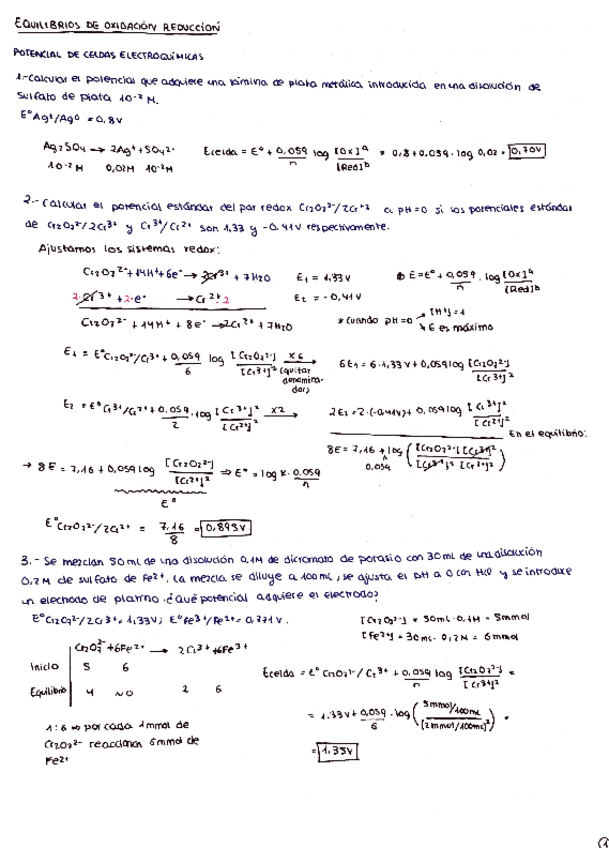 EQUILIBRIOS DE OXIDACIÓN REDUCCIÓN
POTENCIAL DE CELDAS ELECTROQUÍMICAS
1.-Calcular el potencial que adquiere una lámina de plata metálica introducida en una disolución de
sulfato de plata 10⁻² M.
E°Ag⁺/Ag⁰ = 0,8V
Ag₂SO₄ → 2Ag⁺ + SO₄²⁻ Ecelda = E° + 0,059/n log [Ox]ᵃ/[Red]ᵇ = 0,8 + 0,059 · log 0,02 = 0,70V
10⁻² M 0,02M 10⁻² M
2.- Calcular el potencial estándar del par redox Cr₂O₇²⁻/2Cr⁺² a pH=0 si los potenciales estándar
de Cr₂O₇²⁻/2Cr³⁺ y Cr³⁺/Cr²⁺ son 1,33 y -0,41V respectivamente.
Ajustamos los sistemas redox:
Cr₂O₇²⁻ + 14H⁺ + 6e⁻ → 2Cr³⁺ + 7H₂O E₁ = 1,33V E = E° + 0,059/n · log [Ox]ᵃ/[Red]ᵇ
2·Cr³⁺ + 2·e⁻ → Cr²⁺·2 E₂ = -0,41V
Cr₂O₇²⁻ + 14H⁺ + 8e⁻ → 2Cr²⁺ + 7H₂O *Cuando pH=0 → [H⁺]=1
↳ E es máximo
E₁ = E°Cr₂O₇²⁻/Cr³⁺ + 0,059/6 log [Cr₂O₇²⁻]/[Cr³⁺]² x6 (quitar denominador) → 6E₁ = 6·1,33V + 0,059 log [Cr₂O₇²⁻]/[Cr³⁺]²
E₂ = E°Cr³⁺/Cr²⁺ + 0,059/2 · log [Cr³⁺]²/[Cr²⁺]² x2 → 2E₂ = 2·(-0,41V) + 0,059 log [Cr³⁺]²/[Cr²⁺]²
En el equilibrio:
8E = 7,16 + 0,059 log ([Cr₂O₇²⁻] [Cr³⁺]²/[Cr³⁺]² [Cr²⁺]²)
→ 8E = 7,16 + 0,059 log [Cr₂O₇²⁻]/[Cr²⁺]² ⇒ E° = log K · 0,059/n
E°
E°Cr₂O₇²⁻/2Cr²⁺ = 7,16/8 = 0,895V
3.- Se mezclan 50ml de una disolución 0,1M de dicromato de potasio con 30ml de una disolución
0,2M de sulfato de Fe²⁺. La mezcla se diluye a 100ml, se ajusta el pH a 0 con HCl y se introduce
un electrodo de platino. ¿Qué potencial adquiere el electrodo?
E°Cr₂O₇²⁻/2Cr³⁺ = 1,33V; E°Fe³⁺/Fe²⁺ = 0,771V. [Cr₂O₇²⁻] = 50ml · 0,1M = 5mmol
[Fe²⁺] = 30ml · 0,2M = 6mmol
Cr₂O₇²⁻ + 6Fe²⁺ → 2Cr³⁺ + 6Fe³⁺
Inicio 5 6
Equilibrio 4 NO 2 6
Ecelda = E°Cr₂O₇²⁻/Cr³⁺ + 0,059/n log [Cr₂O₇²⁻]/[Cr³⁺]² =
= 1,33V + 0,059/6 · log (5mmol/100ml/[2mmol/100ml]²) =
= 1,35V
1:6 ⇒ por cada 1mmol de
Cr₂O₇²⁻ reacciona 6mmol de
Fe²⁺
1